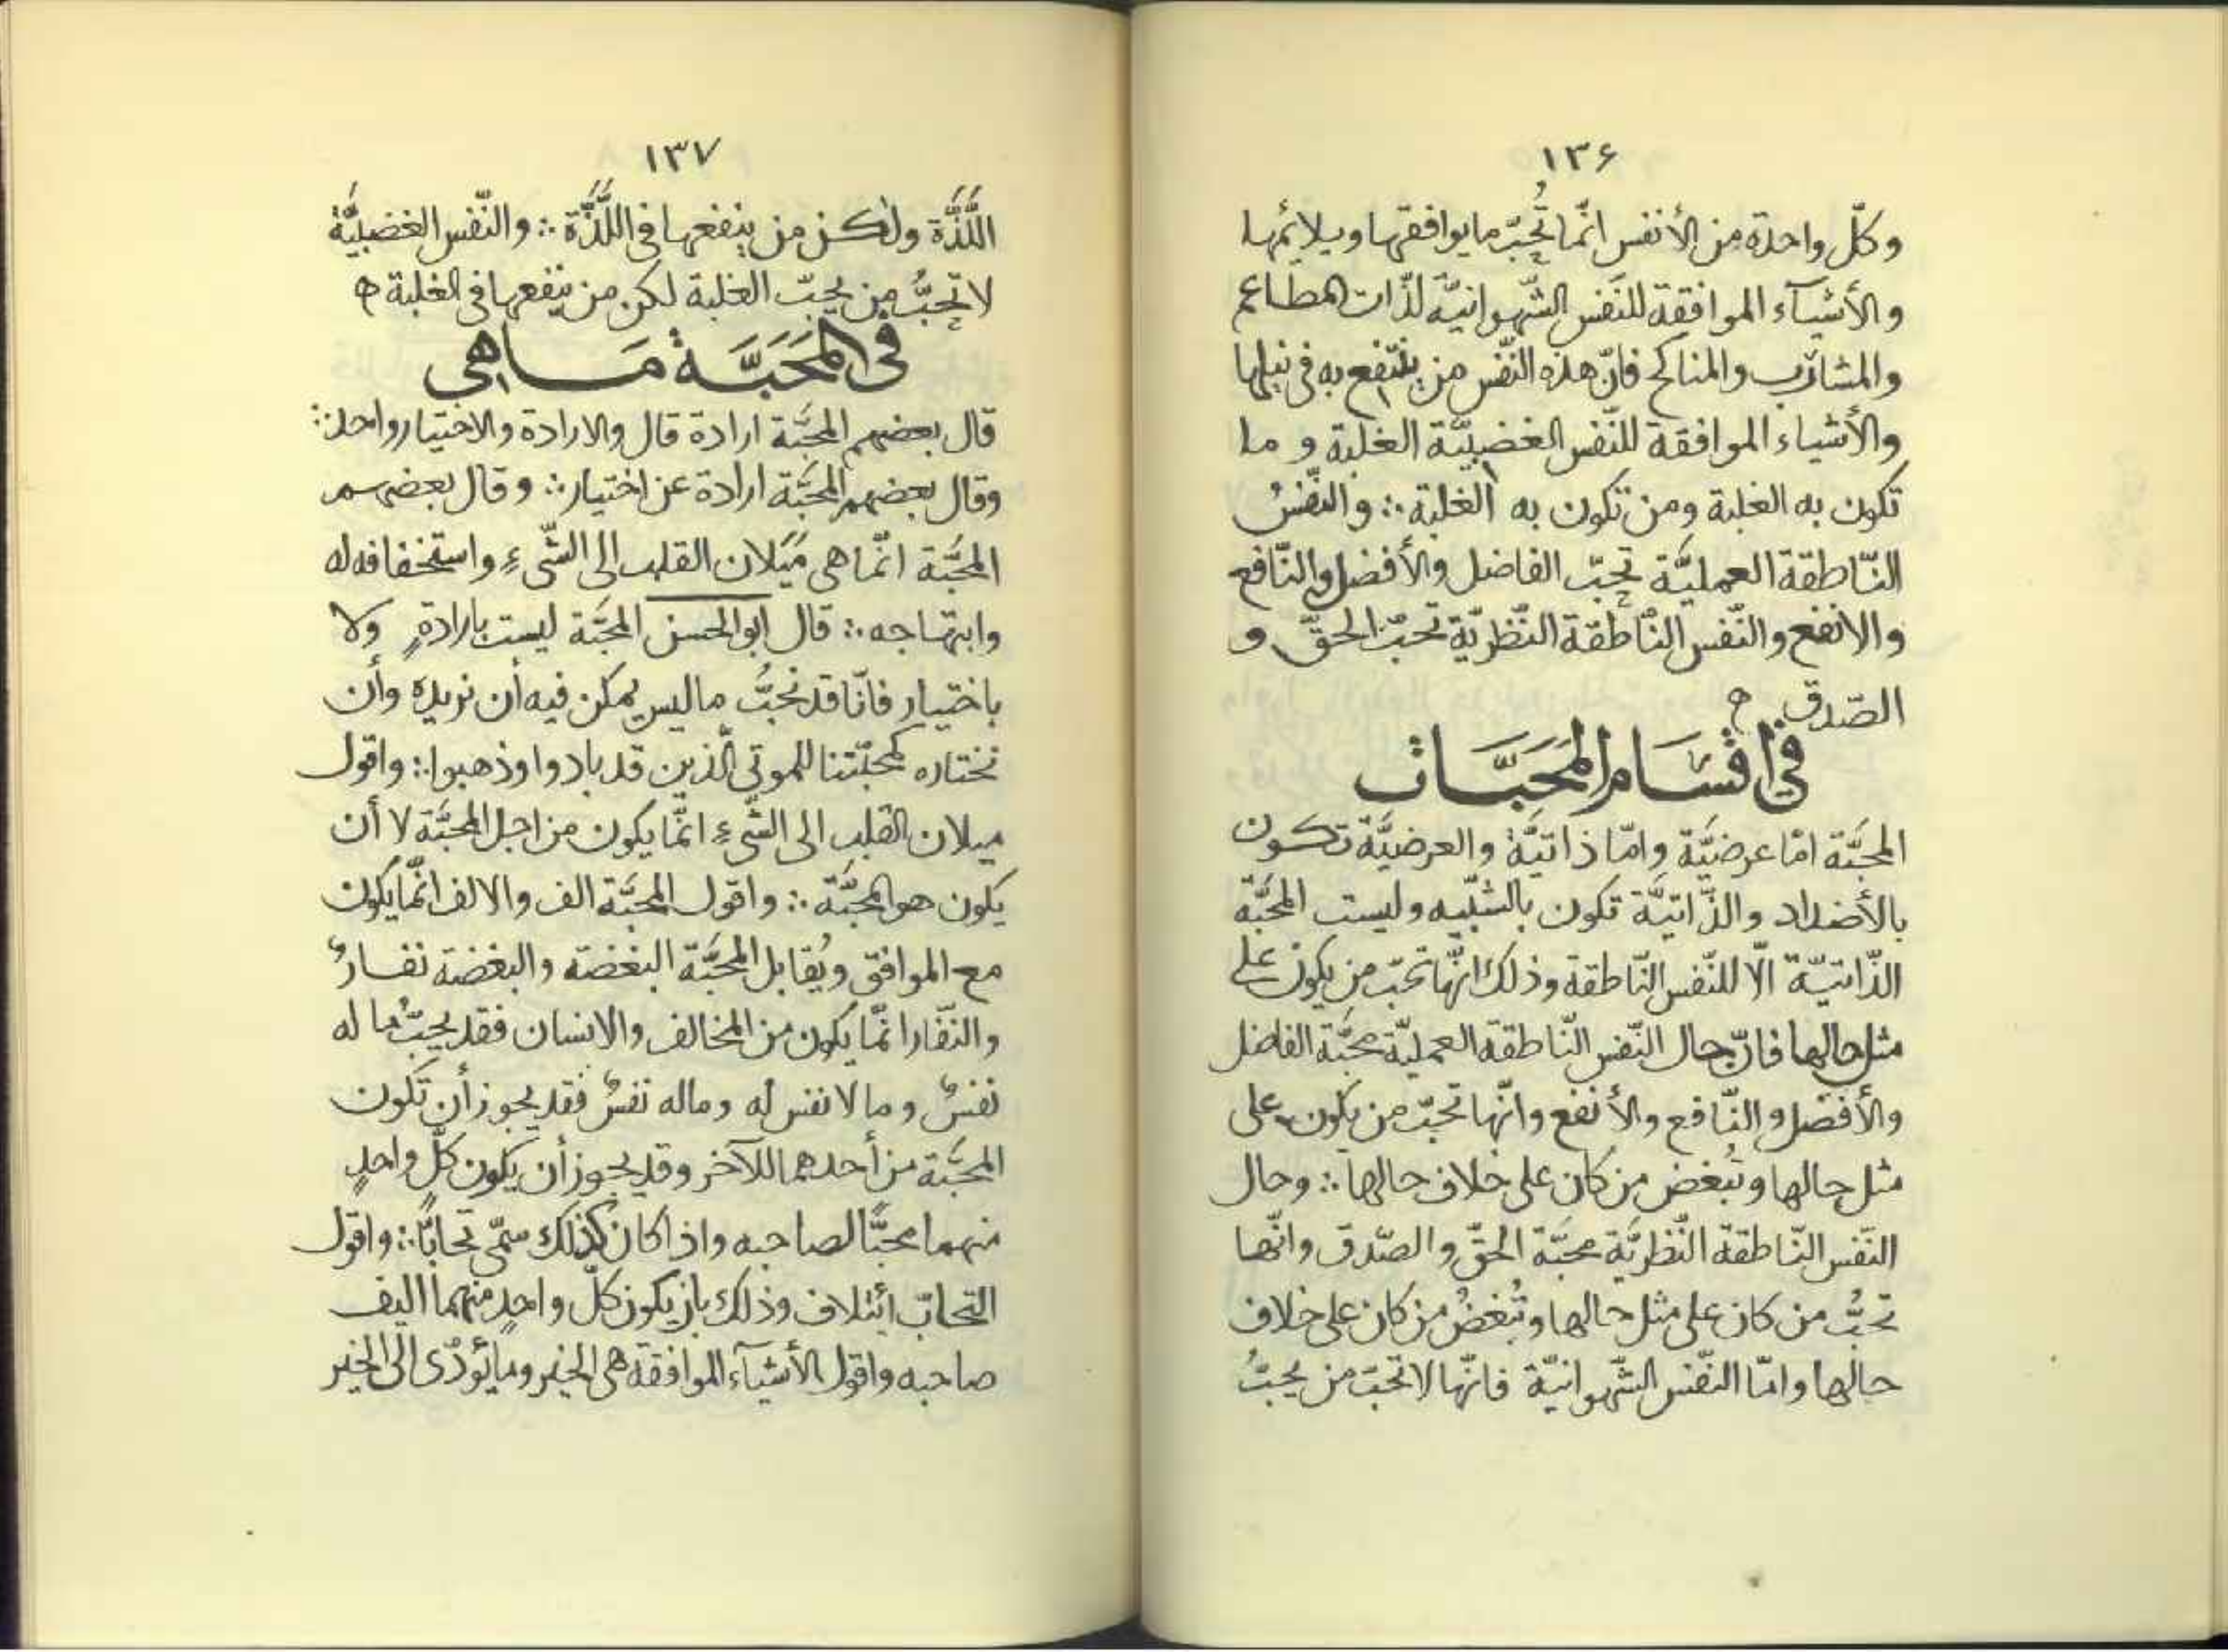 ١٣۶
وكلّ واحدة من الأنفس انّما تُحِبّ ما يوافقها ويلائمها
والأشيآء الموافقة للنّفس الشّهوانيّة لذّات المطاعم
والمشارب والمناكح فانّ هذه النّفس من ينتفع به فى نيلها
والأشياء الموافقة للنّفس الغضبيّة الغلبة و ما
تكون به الغلبة ومن تكون به الغلبة ∴ والنّفسُ
النّاطقة العمليَّة تحبّ الفاضل والأفضل والنّافع
والانفع والنّفس النّاطقة النّظريّة تحبّ الحقّ و
الصّدق ه
فى اقسَام المَحَبَّات
المحبَّة امّا عرضيَّة وامّا ذاتيَّة والعرضيَّة تكون
بالأضداد والذّاتيَّة تكون بالشّبيه وليست المحبَّة
الذّاتيّة الّا للنّفس النّاطقة وذلك انّها تحبّ من يكون على
مثل حالها فانّ حال النّفس النّاطقة العمليّة محبَّة الفاضل
والأفضل والنّافع والأنفع وانّها تحبّ من يكون على
مثل حالها وتُبغض من كان على خلاف حالها ∴ وحال
النّفس النّاطقة النّظريَّة محبَّة الحقّ والصّدق وانّها
تحبُّ من كان على مثل حالها وتُبغضُ من كان على خلاف
حالها وامّا النّفس الشّهوانيّة فانّها لا تحبّ من يحبُّ
١٣٧
اللَّذَّة ولٰكن من ينفعها فى اللَّذَّة ∴ والنّفس الغضبيَّة
لا تحِبُّ من يحبّ الغلبة لكن من ينفعها فى الغلبة ه
فى المَحَبَّة مَا هى
قال بعضهم المحبَّة ارادة قال والارادة والاختيار واحد ∴
وقال بعضهم المحبَّة ارادة عن اختيار ∴ وقال بعضهم
المحبَّة انّما هى مَيَلان القلب الى الشّىءِ واستخفافه له
وابتهاجه ∴ قال ابو الحسن المحبَّة ليست بارادةٍ ولا
باختيار فانّا قد نحبُّ ما ليس يمكن فيه أن نريده وأن
نختاره كمحبّتنا للموتى الّذين قد بادوا وذهبوا ∴ واقول
ميلان القلب الى الشّىءِ انّما يكون من اجل المحبَّة لا أن
يكون هو المحبَّة ∴ واقول المحبَّة الف والالف انّما يكون
مع الموافق ويُقابل المحبَّة البغضة والبغضة نفارٌ
والنّفار انّما يكون من المخالف والانسان فقد يحبُّ ما له
نفسٌ وما لا نفس له وماله نفسٌ فقد يجوز أن تكون
المحبَّة من أحدهما للآخر وقد يجوز أن يكون كلّ واحدٍ
منهما محبًّا لصاحبه واذا كان كذلك سمّى تحابًّا ∴ واقول
التحابّ ائتلاف وذلك بان يكون كلّ واحدٍ منهما اليف
صاحبه واقول الأشيآء الموافقة هى الخير وما يُؤدّى الى الخير